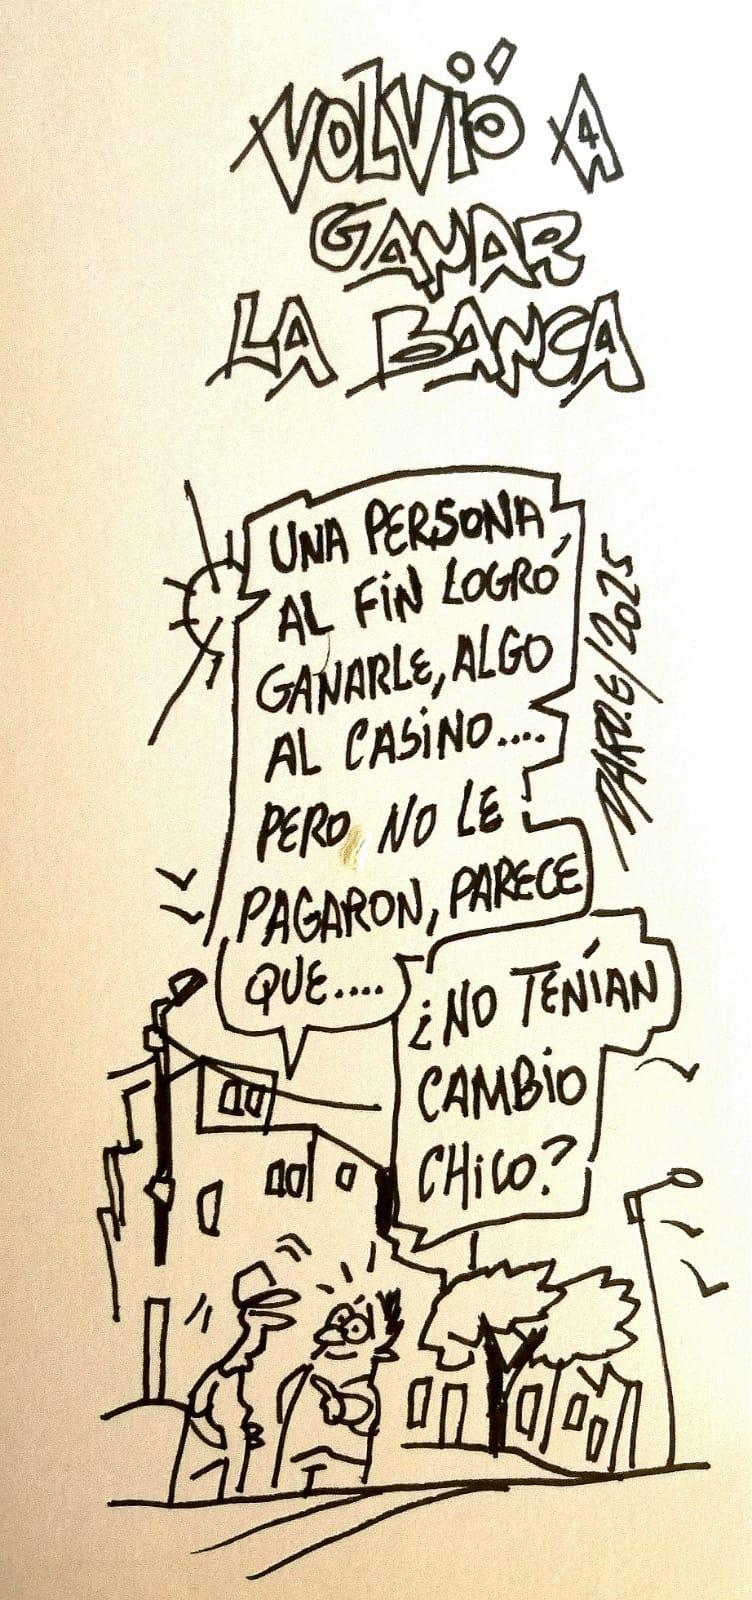 VOLVIÓ A
GANAR
LA BANCA
UNA PERSONA
AL FIN LOGRÓ
GANARLE, ALGO
AL CASINO....
PERO, NO LE
PAGARON, PARECE
QUE....
¿NO TENÍAN
CAMBIO
CHICO?
/2025